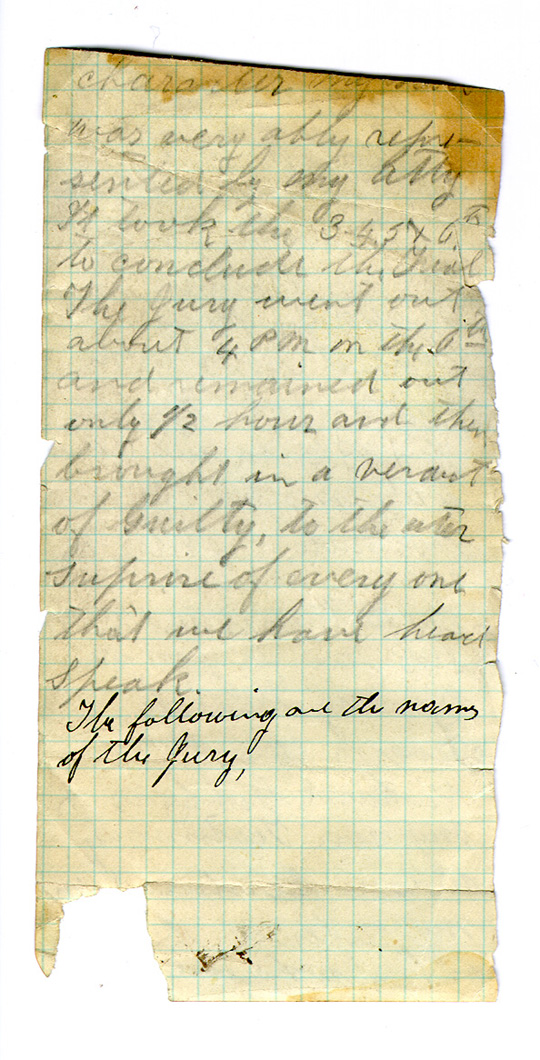 character my
was very ably repre-
sented by my atty
It took the 3 4, 5 & 6th
to conclude the Trial
The Jury went out
about 4 PM on the 6th
and remained out
only 1/2 hour and then
brought in a verdict
of Guilty, to the uter
suprise of every one
that we have heard
speak.
The following are the names
of the Jury,